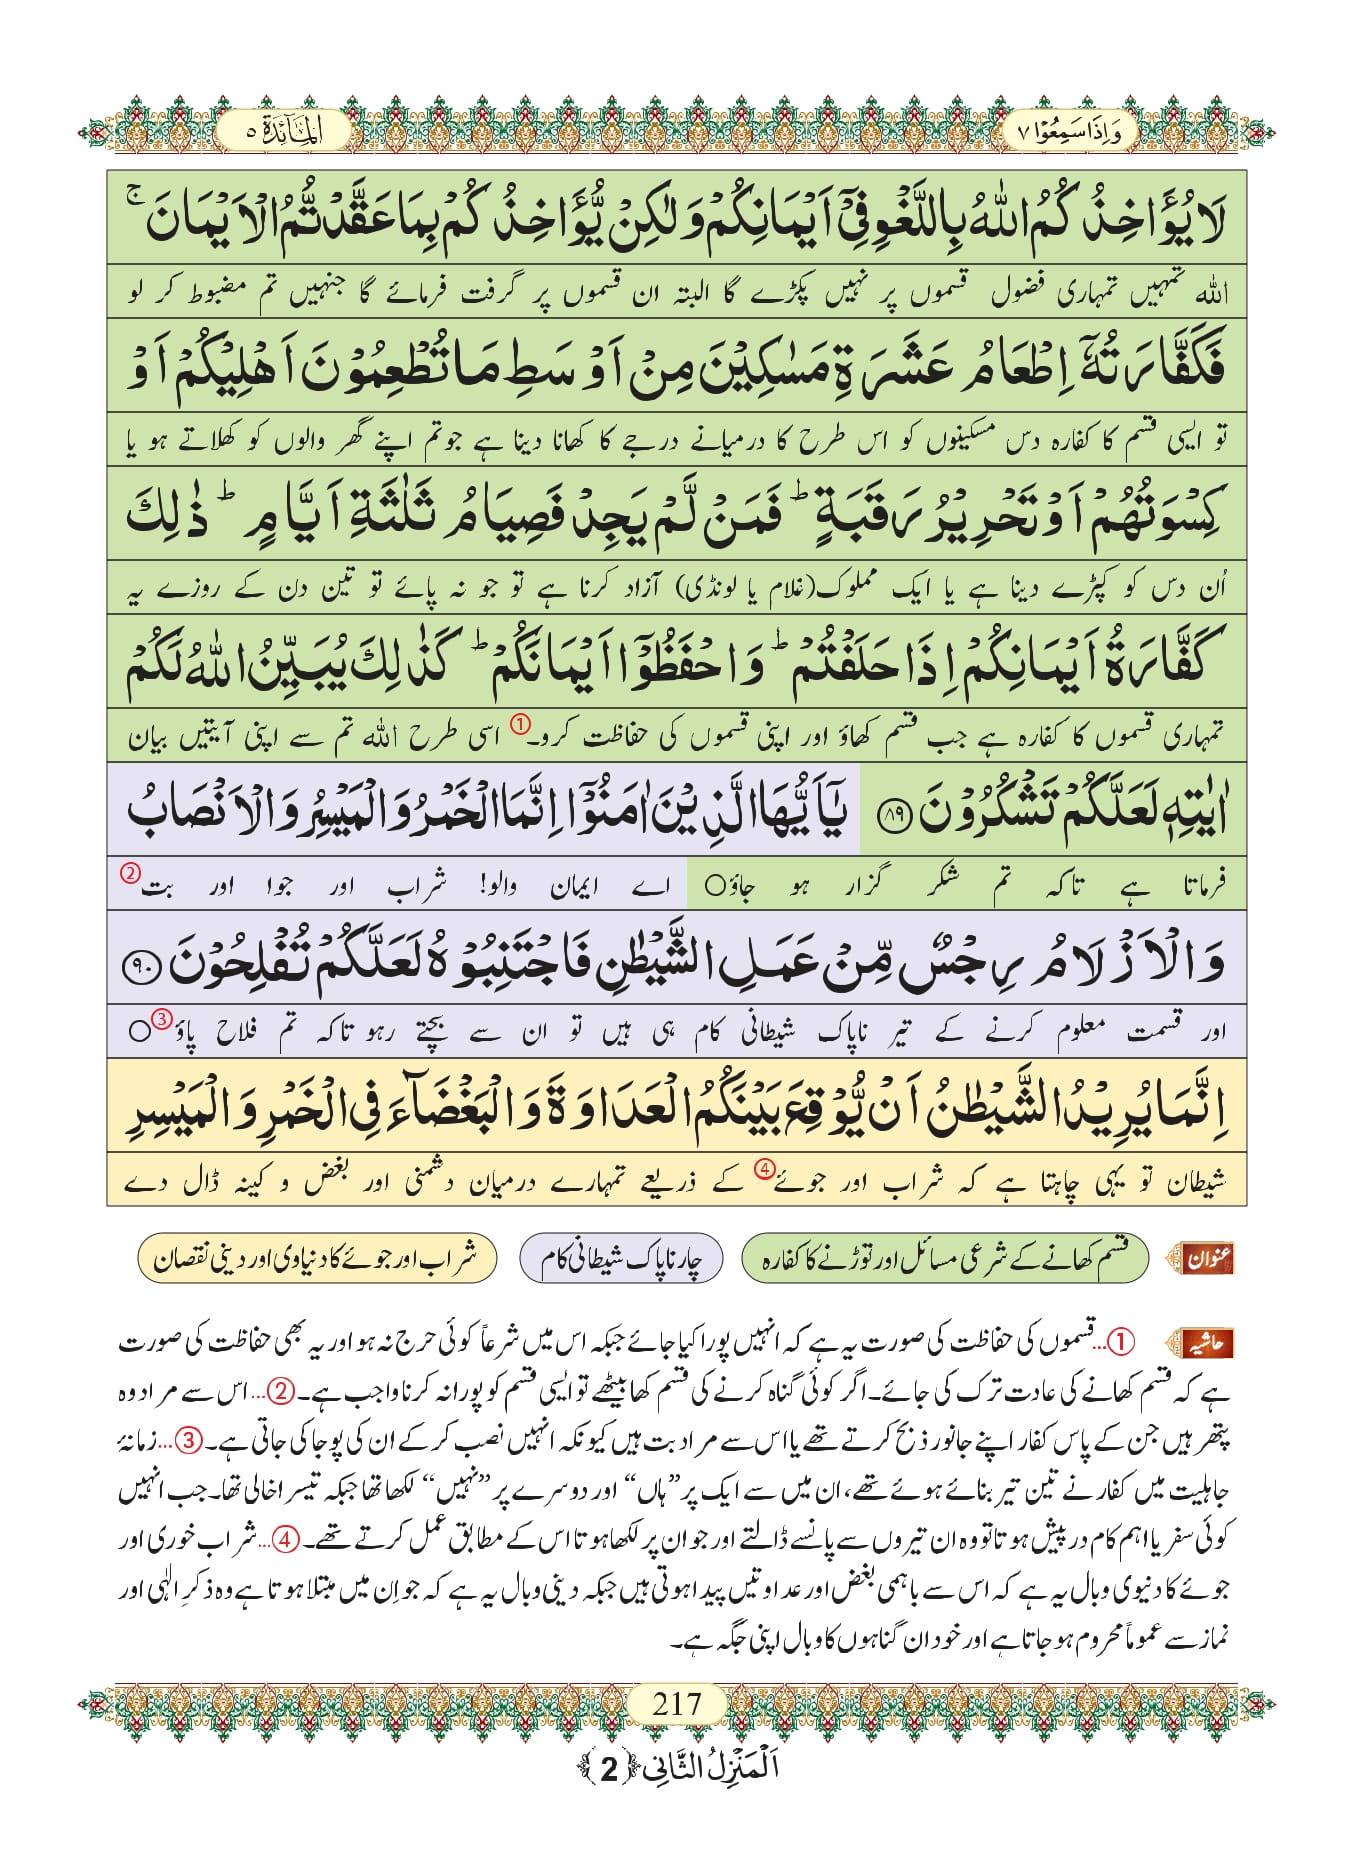 وَ اِذَا سَمِعُوْا ۷
اَلْمَآئِدَة ۵
لَا یُؤَاخِذُكُمُ اللّٰهُ بِاللَّغْوِ فِیْۤ اَیْمَانِكُمْ وَ لٰكِنْ یُّؤَاخِذُكُمْ بِمَا عَقَّدْتُّمُ الْاَیْمَانَ ۚ
اللّٰہ تمہیں تمہاری فضول قسموں پر نہیں پکڑے گا البتہ ان قسموں پر گرفت فرمائے گا جنہیں تم مضبوط کر لو
فَكَفَّارَتُهٗۤ اِطْعَامُ عَشَرَةِ مَسٰكِیْنَ مِنْ اَوْسَطِ مَا تُطْعِمُوْنَ اَهْلِیْكُمْ اَوْ
تو ایسی قسم کا کفارہ دس مسکینوں کو اس طرح کا درمیانے درجے کا کھانا دینا ہے جو تم اپنے گھر والوں کو کھلاتے ہو یا
كِسْوَتُهُمْ اَوْ تَحْرِیْرُ رَقَبَةٍ ؕ فَمَنْ لَّمْ یَجِدْ فَصِیَامُ ثَلٰثَةِ اَیَّامٍ ؕ ذٰلِكَ
اُن دس کو کپڑے دینا ہے یا ایک مملوک(غلام یا لونڈی) آزاد کرنا ہے تو جو نہ پائے تو تین دن کے روزے یہ
كَفَّارَةُ اَیْمَانِكُمْ اِذَا حَلَفْتُمْ ؕ وَ احْفَظُوْۤا اَیْمَانَكُمْ ؕ كَذٰلِكَ یُبَیِّنُ اللّٰهُ لَكُمْ
تمہاری قسموں کا کفارہ ہے جب قسم کھاؤ اور اپنی قسموں کی حفاظت کرو۔① اسی طرح اللّٰہ تم سے اپنی آیتیں بیان
اٰیٰتِهٖ لَعَلَّكُمْ تَشْكُرُوْنَ ۸۹ یٰۤاَیُّهَا الَّذِیْنَ اٰمَنُوْۤا اِنَّمَا الْخَمْرُ وَ الْمَیْسِرُ وَ الْاَنْصَابُ
فرماتا ہے تاکہ تم شکر گزار ہو جاؤ○ اے ایمان والو! شراب اور جوا اور بت②
وَ الْاَزْلَامُ رِجْسٌ مِّنْ عَمَلِ الشَّیْطٰنِ فَاجْتَنِبُوْهُ لَعَلَّكُمْ تُفْلِحُوْنَ ۹۰
اور قسمت معلوم کرنے کے تیر ناپاک شیطانی کام ہی ہیں تو ان سے بچتے رہو تاکہ تم فلاح پاؤ③○
اِنَّمَا یُرِیْدُ الشَّیْطٰنُ اَنْ یُّوْقِعَ بَیْنَكُمُ الْعَدَاوَةَ وَ الْبَغْضَآءَ فِی الْخَمْرِ وَ الْمَیْسِرِ
شیطان تو یہی چاہتا ہے کہ شراب اور جوئے④ کے ذریعے تمہارے درمیان دشمنی اور بغض و کینہ ڈال دے
عنوان قسم کھانے کے شرعی مسائل اور توڑنے کا کفارہ چار ناپاک شیطانی کام شراب اور جوئے کا دنیاوی اور دینی نقصان
حاشیہ ①...قسموں کی حفاظت کی صورت یہ ہے کہ انہیں پورا کیا جائے جبکہ اس میں شرعاً کوئی حرج نہ ہو اور یہ بھی حفاظت کی صورت
ہے کہ قسم کھانے کی عادت ترک کی جائے۔ اگر کوئی گناہ کرنے کی قسم کھا بیٹھے تو ایسی قسم کو پورا نہ کرنا واجب ہے۔ ②... اس سے مراد وہ
پتھر ہیں جن کے پاس کفار اپنے جانور ذبح کرتے تھے یا اس سے مراد بت ہیں کیونکہ انہیں نصب کر کے ان کی پوجا کی جاتی ہے۔ ③... زمانۂ
جاہلیت میں کفار نے تین تیر بنائے ہوئے تھے، ان میں سے ایک پر ”ہاں“ اور دوسرے پر ”نہیں“ لکھا تھا جبکہ تیسرا خالی تھا۔ جب انہیں
کوئی سفر یا اہم کام درپیش ہوتا تو وہ ان تیروں سے پانسے ڈالتے اور جو ان پر لکھا ہوتا اس کے مطابق عمل کرتے تھے۔ ④... شراب خوری اور
جوئے کا دنیوی وبال یہ ہے کہ اس سے باہمی بغض اور عداوتیں پیدا ہوتی ہیں جبکہ دینی وبال یہ ہے کہ جو اِن میں مبتلا ہوتا ہے وہ ذکرِ الٰہی اور
نماز سے عموماً محروم ہو جاتا ہے اور خود ان گناہوں کا وبال اپنی جگہ ہے۔
217
اَلْمَنْزِلُ الثَّانِی ﴿2﴾